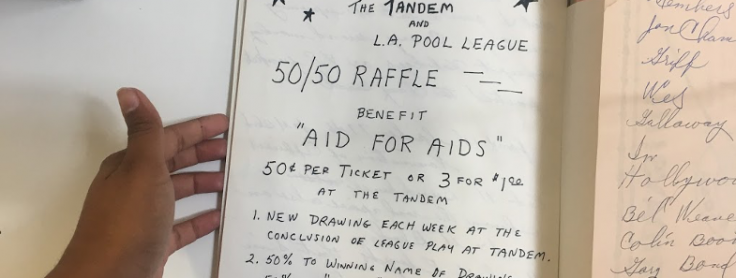 THE TANDEM
AND
L.A. POOL LEAGUE
50/50 RAFFLE
BENEFIT
"AID FOR AIDS"
50¢ PER TICKET OR 3 FOR $1.00
AT THE TANDEM
1. NEW DRAWING EACH WEEK AT THE
CONCLUSION OF LEAGUE PLAY AT TANDEM.
2. 50% TO WINNING NAME OF DRAWING
Griff
Wes
Galloway
Colin
Gary Bond